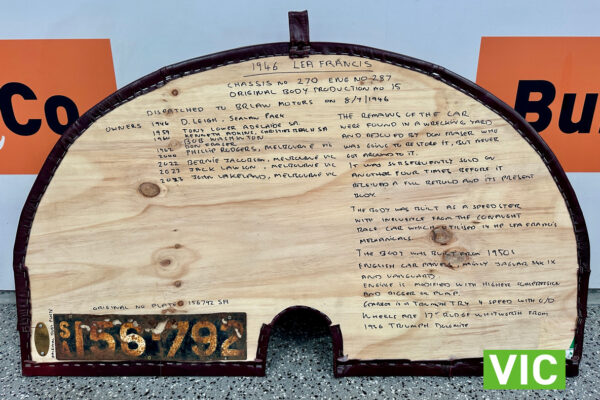 Co
Bu
1946 LEA FRANCIS
CHASSIS NO 270 ENG NO 287
ORIGINAL BODY PRODUCTION NO 15
DISPATCHED TO BRLAW MOTORS ON 8/7/1946
OWNERS 1946 D. LEIGH, SEALAW PARK
1959 TONY LOWER ADELAIDE SA
KENNETH ADKINS, CHRISTIES BEACH SA
BOB WASHINTON
DON FRASER
PHILLIP ROGERS, MELBOURNE VIC
2021 BERNIE JACOBSON, MELBOURNE VIC
2023 JACK LAWSON, MELBOURNE VIC
2023 JOHN LAKELAND, MELBOURNE VIC
THE REMAINS OF THE CAR
WERE FOUND IN A WRECKING YARD
AND RESCUED BY DON FRASER WHO
WAS GOING TO RESTORE IT, BUT NEVER
GOT AROUND TO IT.
IT WAS SUBSEQUENTLY SOLD ON
ANOTHER FOUR TIMES BEFORE IT
RECEIVED A FULL REBUILD AND ITS PRESENT
BODY.
THE BODY WAS BUILT AS A SPEEDSTER
WITH INFLUENCE FROM THE CONNAUGHT
RACE CAR WHICH UTILISED THE LEA FRANCIS
MECHANICALS
THE BODY WAS BUILT FROM 1950s
ENGLISH CAR PANELS, MAINLY JAGUAR MK IX
AND VANGUARDS
ENGINE IS MODIFIED WITH HIGHER COMPRESSION
AND BIGGER OIL PUMP.
GEARBOX IS A TRIUMPH TR4 4 SPEED WITH O/D
WHEELS ARE 17" RUDGE WHITWORTH FROM
1936 TRIUMPH DOLOMITE
ORIGINAL NO PLATE 156792 SA
S 156·792
VIC